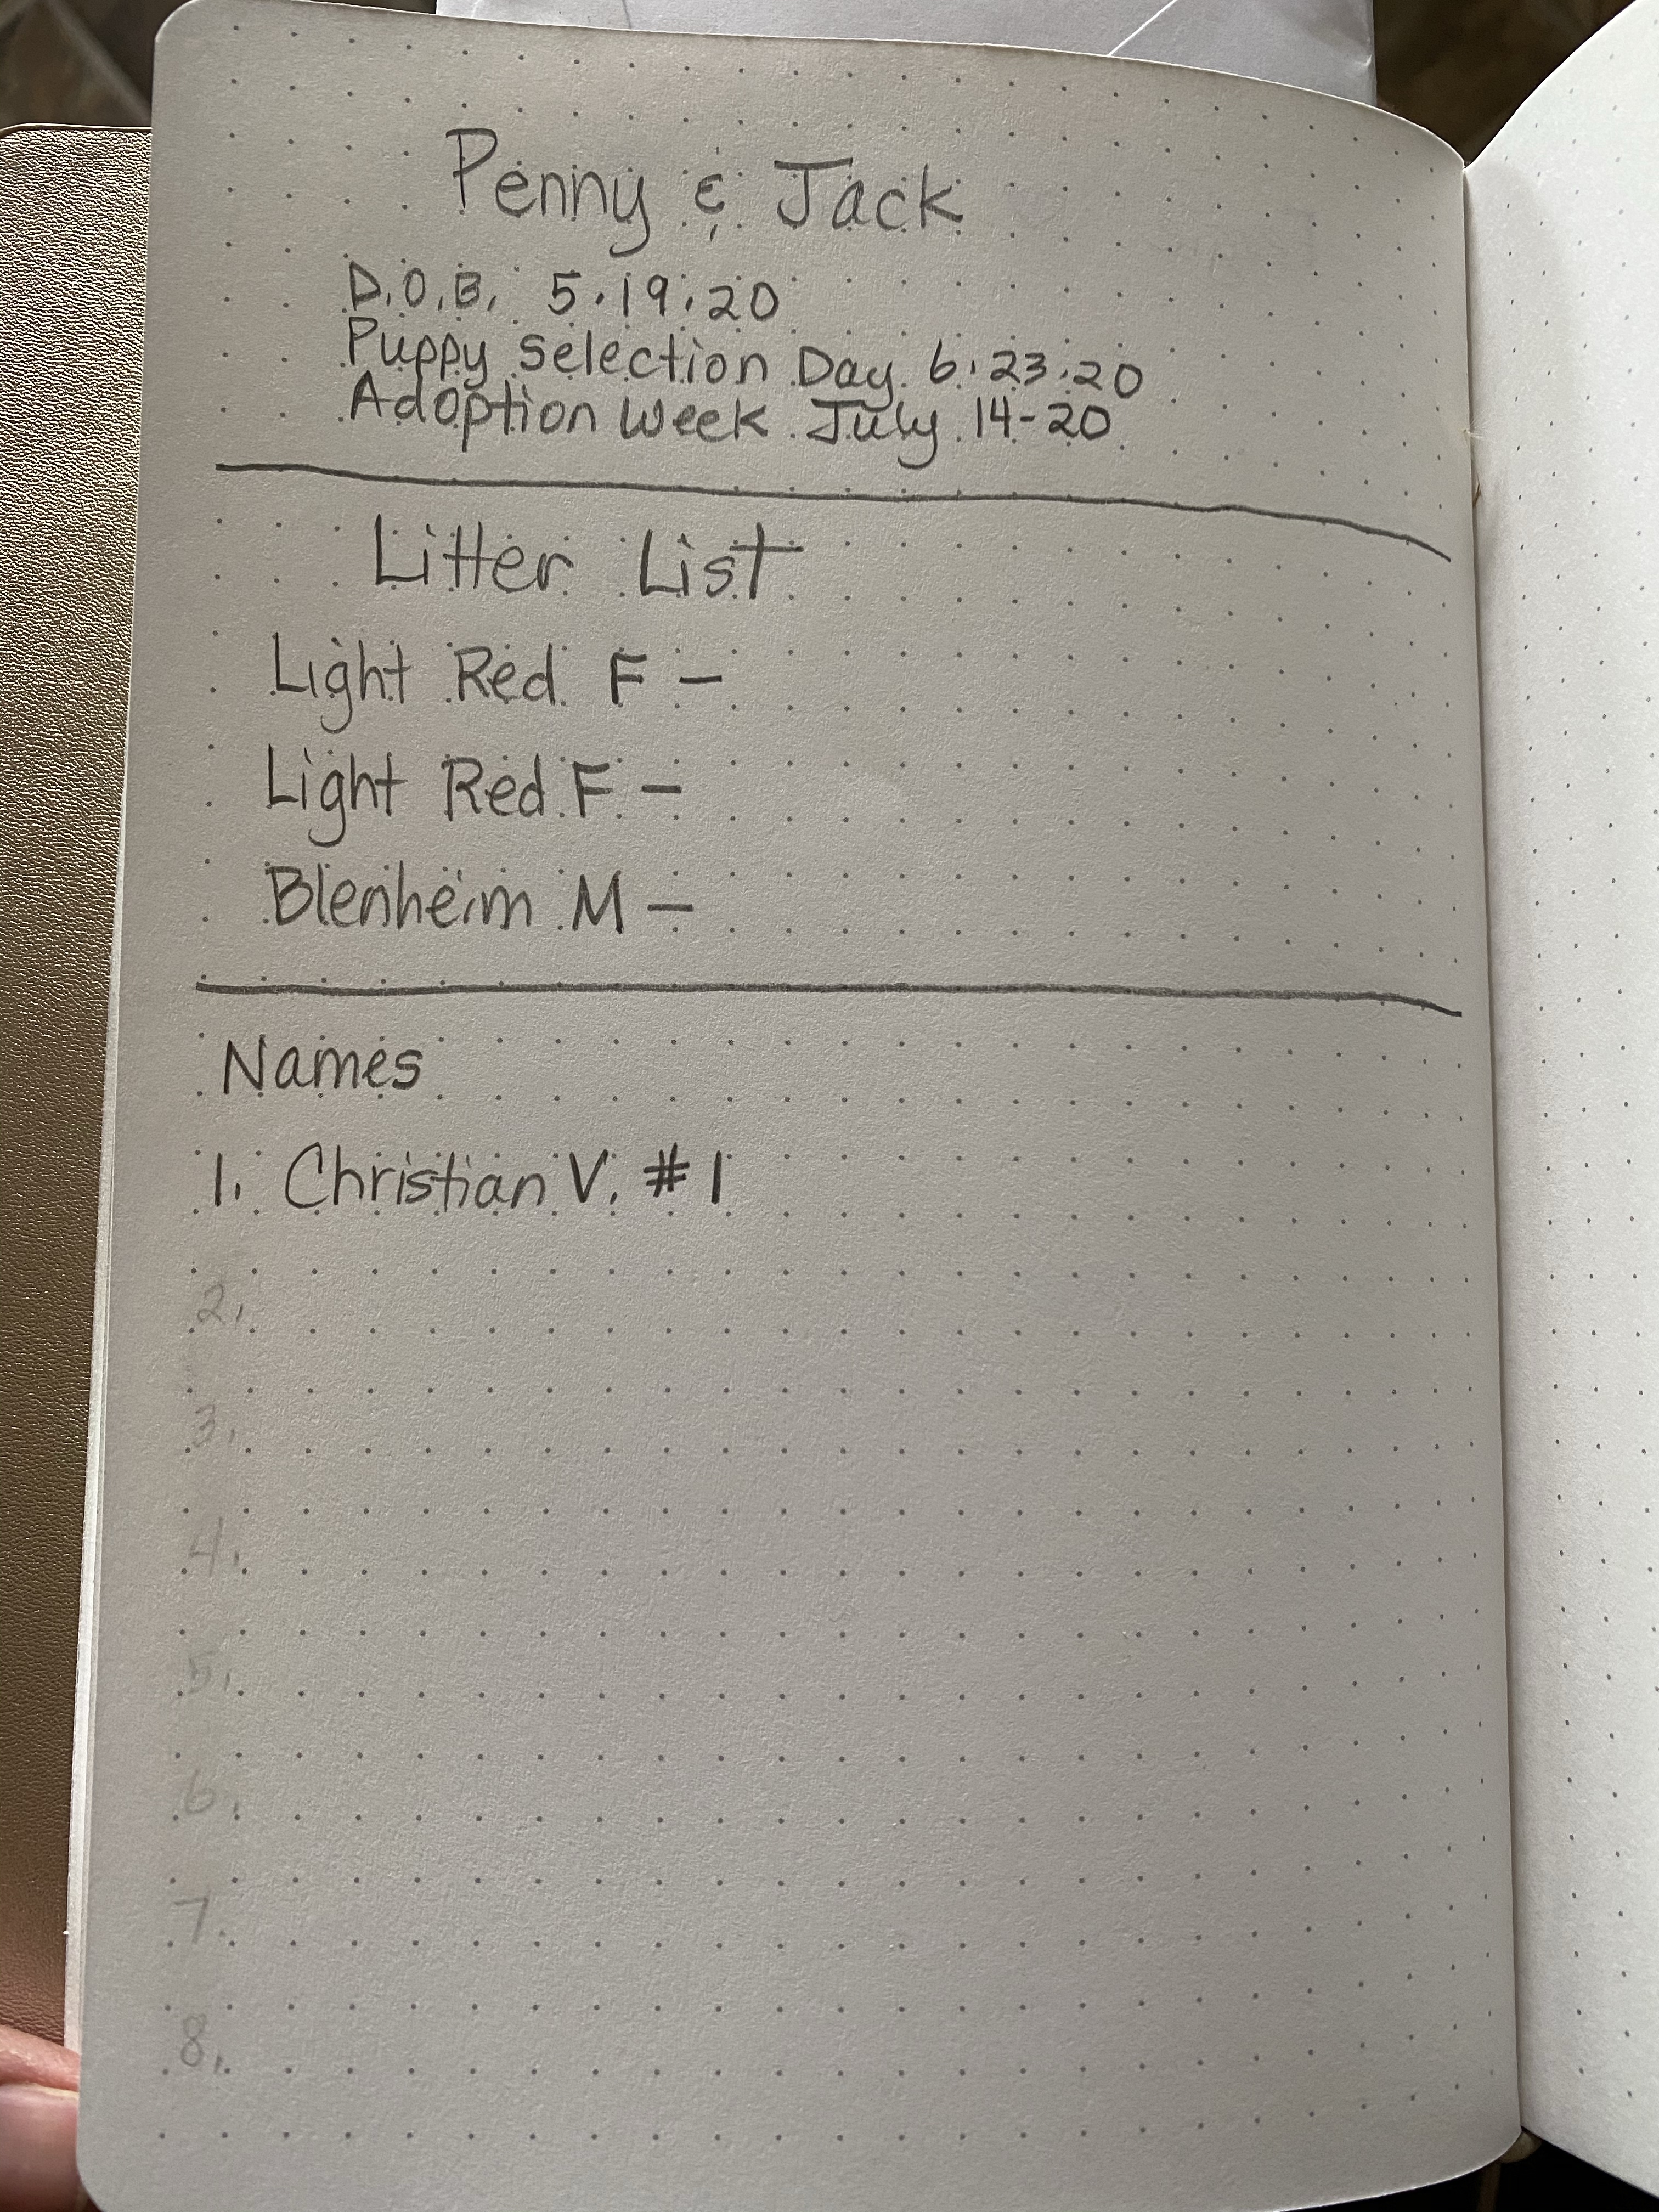 Penny & Jack
D.O.B. 5.19.20
Puppy Selection Day 6.23.20
Adoption Week July 14-20
Litter List
Light Red F -
Light Red F -
Blenheim M -
Names
1. Christian V. #1
2.
3.
4.
5.
6.
7.
8.